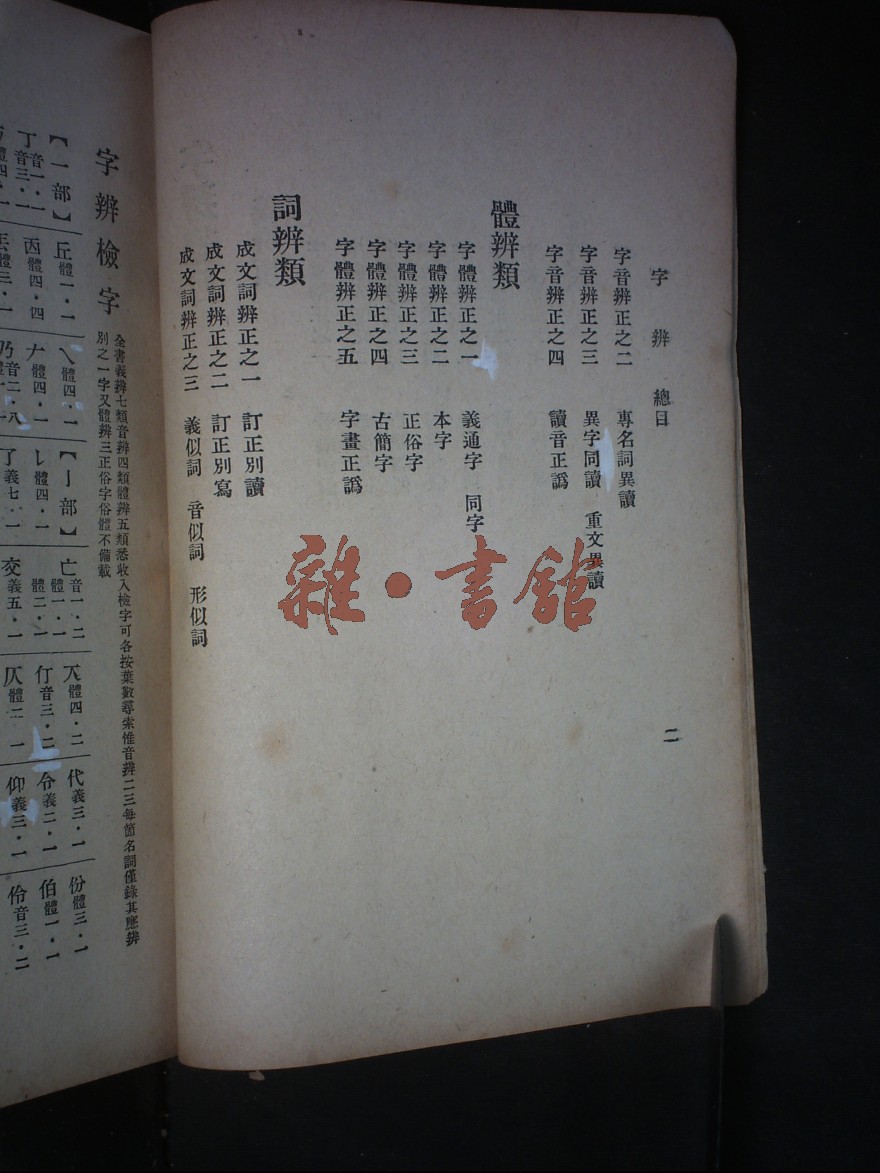 字辨　總目
字音辨正之二　專名詞異讀
字音辨正之三　異字同讀　重文異讀
字音辨正之四　讀音正譌
體辨類
字體辨正之一　義通字　同字
字體辨正之二　本字
字體辨正之三　正俗字
字體辨正之四　古簡字
字體辨正之五　字畫正譌
詞辨類
成文詞辨正之一　訂正別讀
成文詞辨正之二　訂正別寫
成文詞辨正之三　義似詞　音似詞　形似詞
二
雜·書館
字辨檢字
全書義辨七類音辨四類體辨五類悉收入檢字可各按葉數尋索惟音辨二三每節名詞僅錄其應辨
別之一字又體辨三正俗字俗體不備載
【一部】
丁音一·一
音三·一
丘體一·一
丙體四·四
乀體四·二
𠂇體四·一
乃音二·八
【亅部】
亅體四·一
了義七·一
亡音一·二
體一·一
體二·一
交義五·一
兲體四·二
仃音三·二
仄體二·一
代義三·一
令義二·一
仰義三·一
份體三·一
伯體一·一
伶音三·二